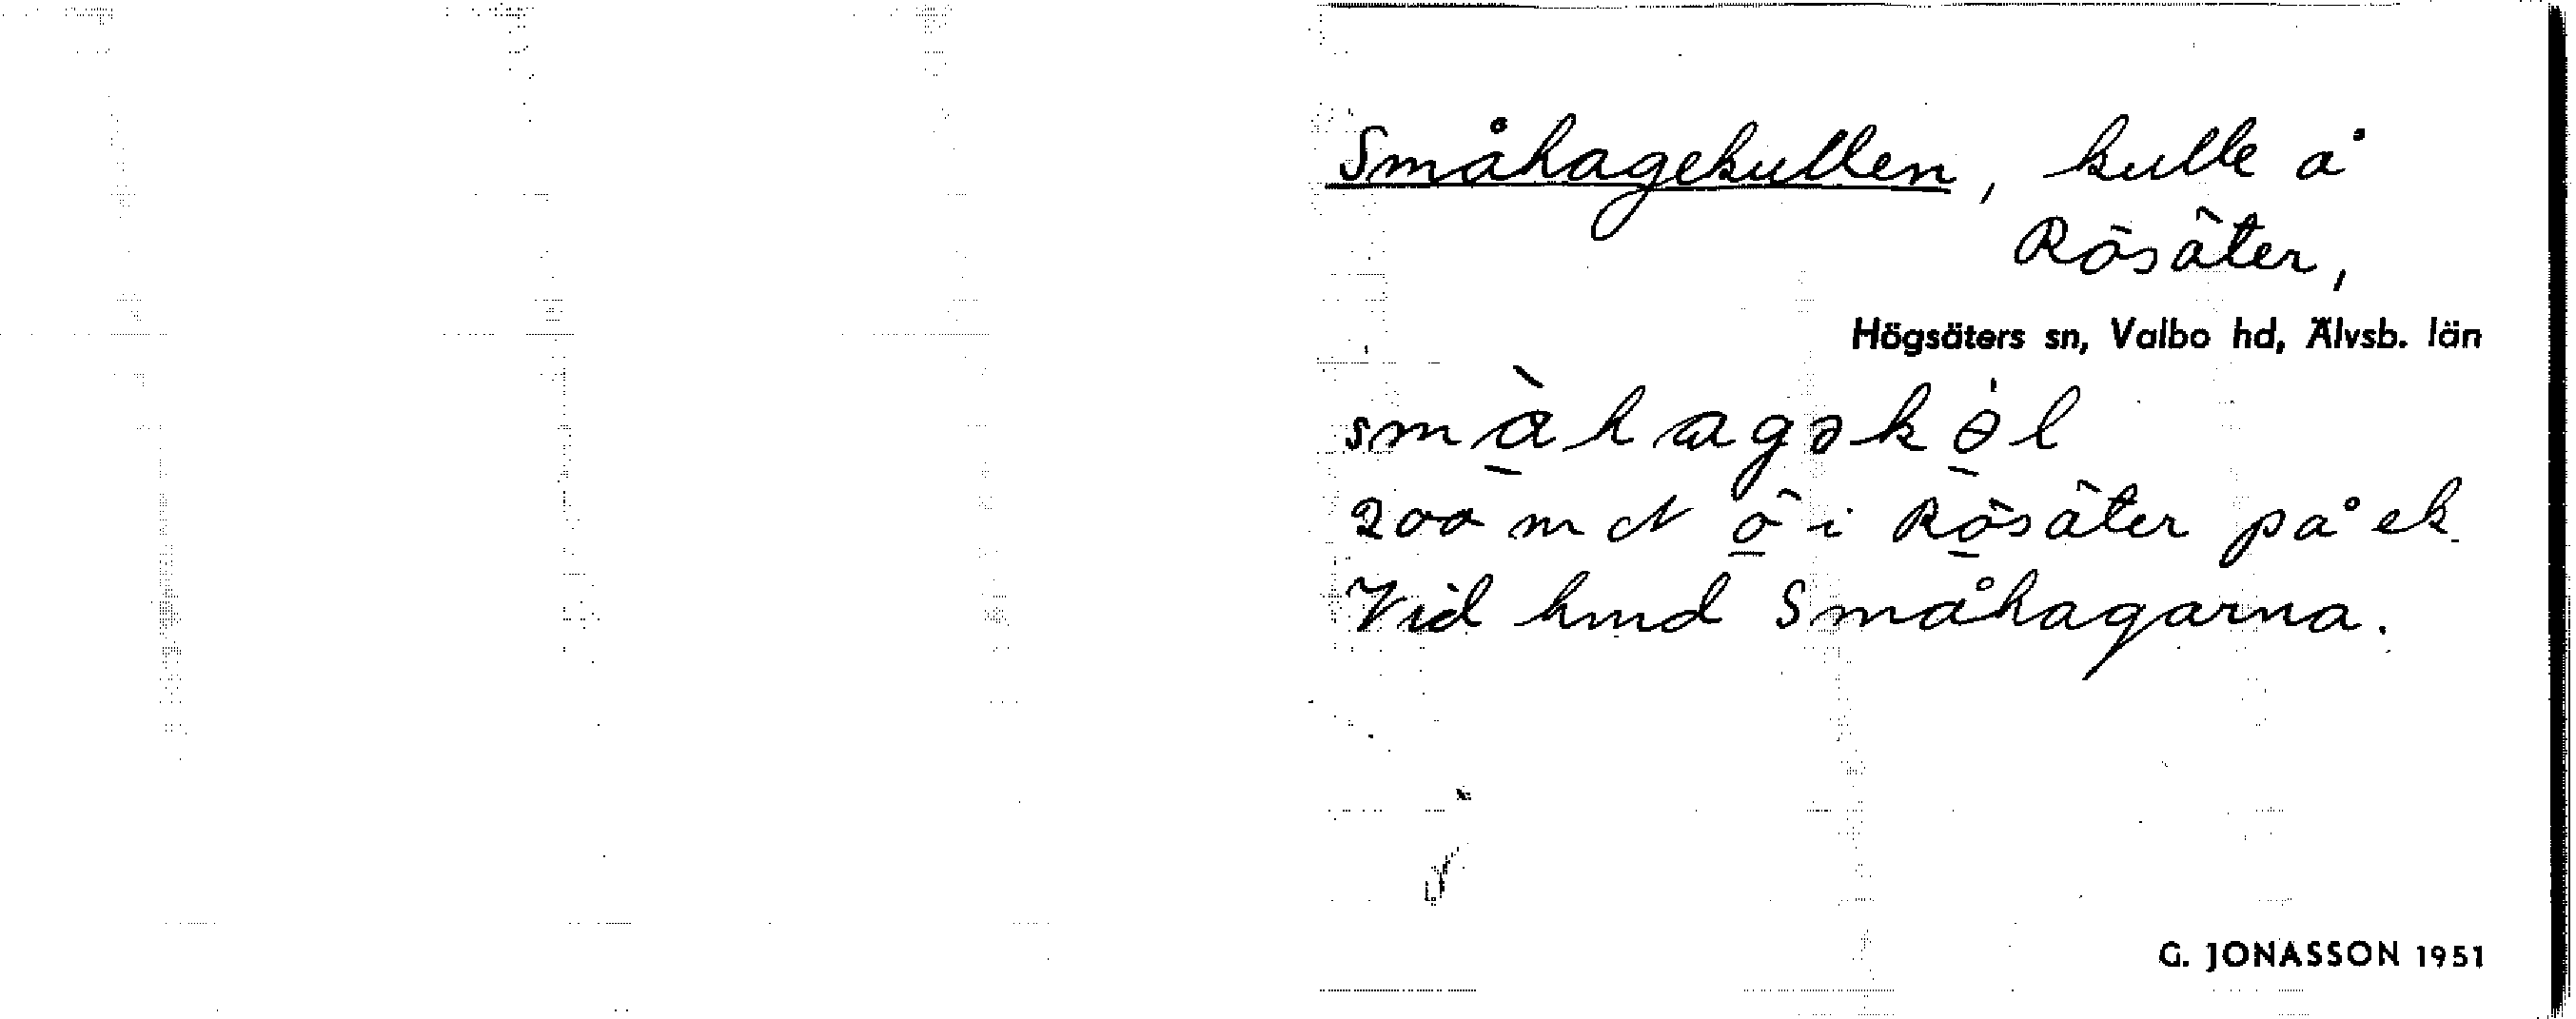 Småhagekullen, kulle å
Rösäter,
Högsäters sn, Valbo hd, Älvsb. län
småhagəkɵl
200 m N ö i Rösäter på ek
Vid hmd Småhagarna.
G. JONASSON 1951